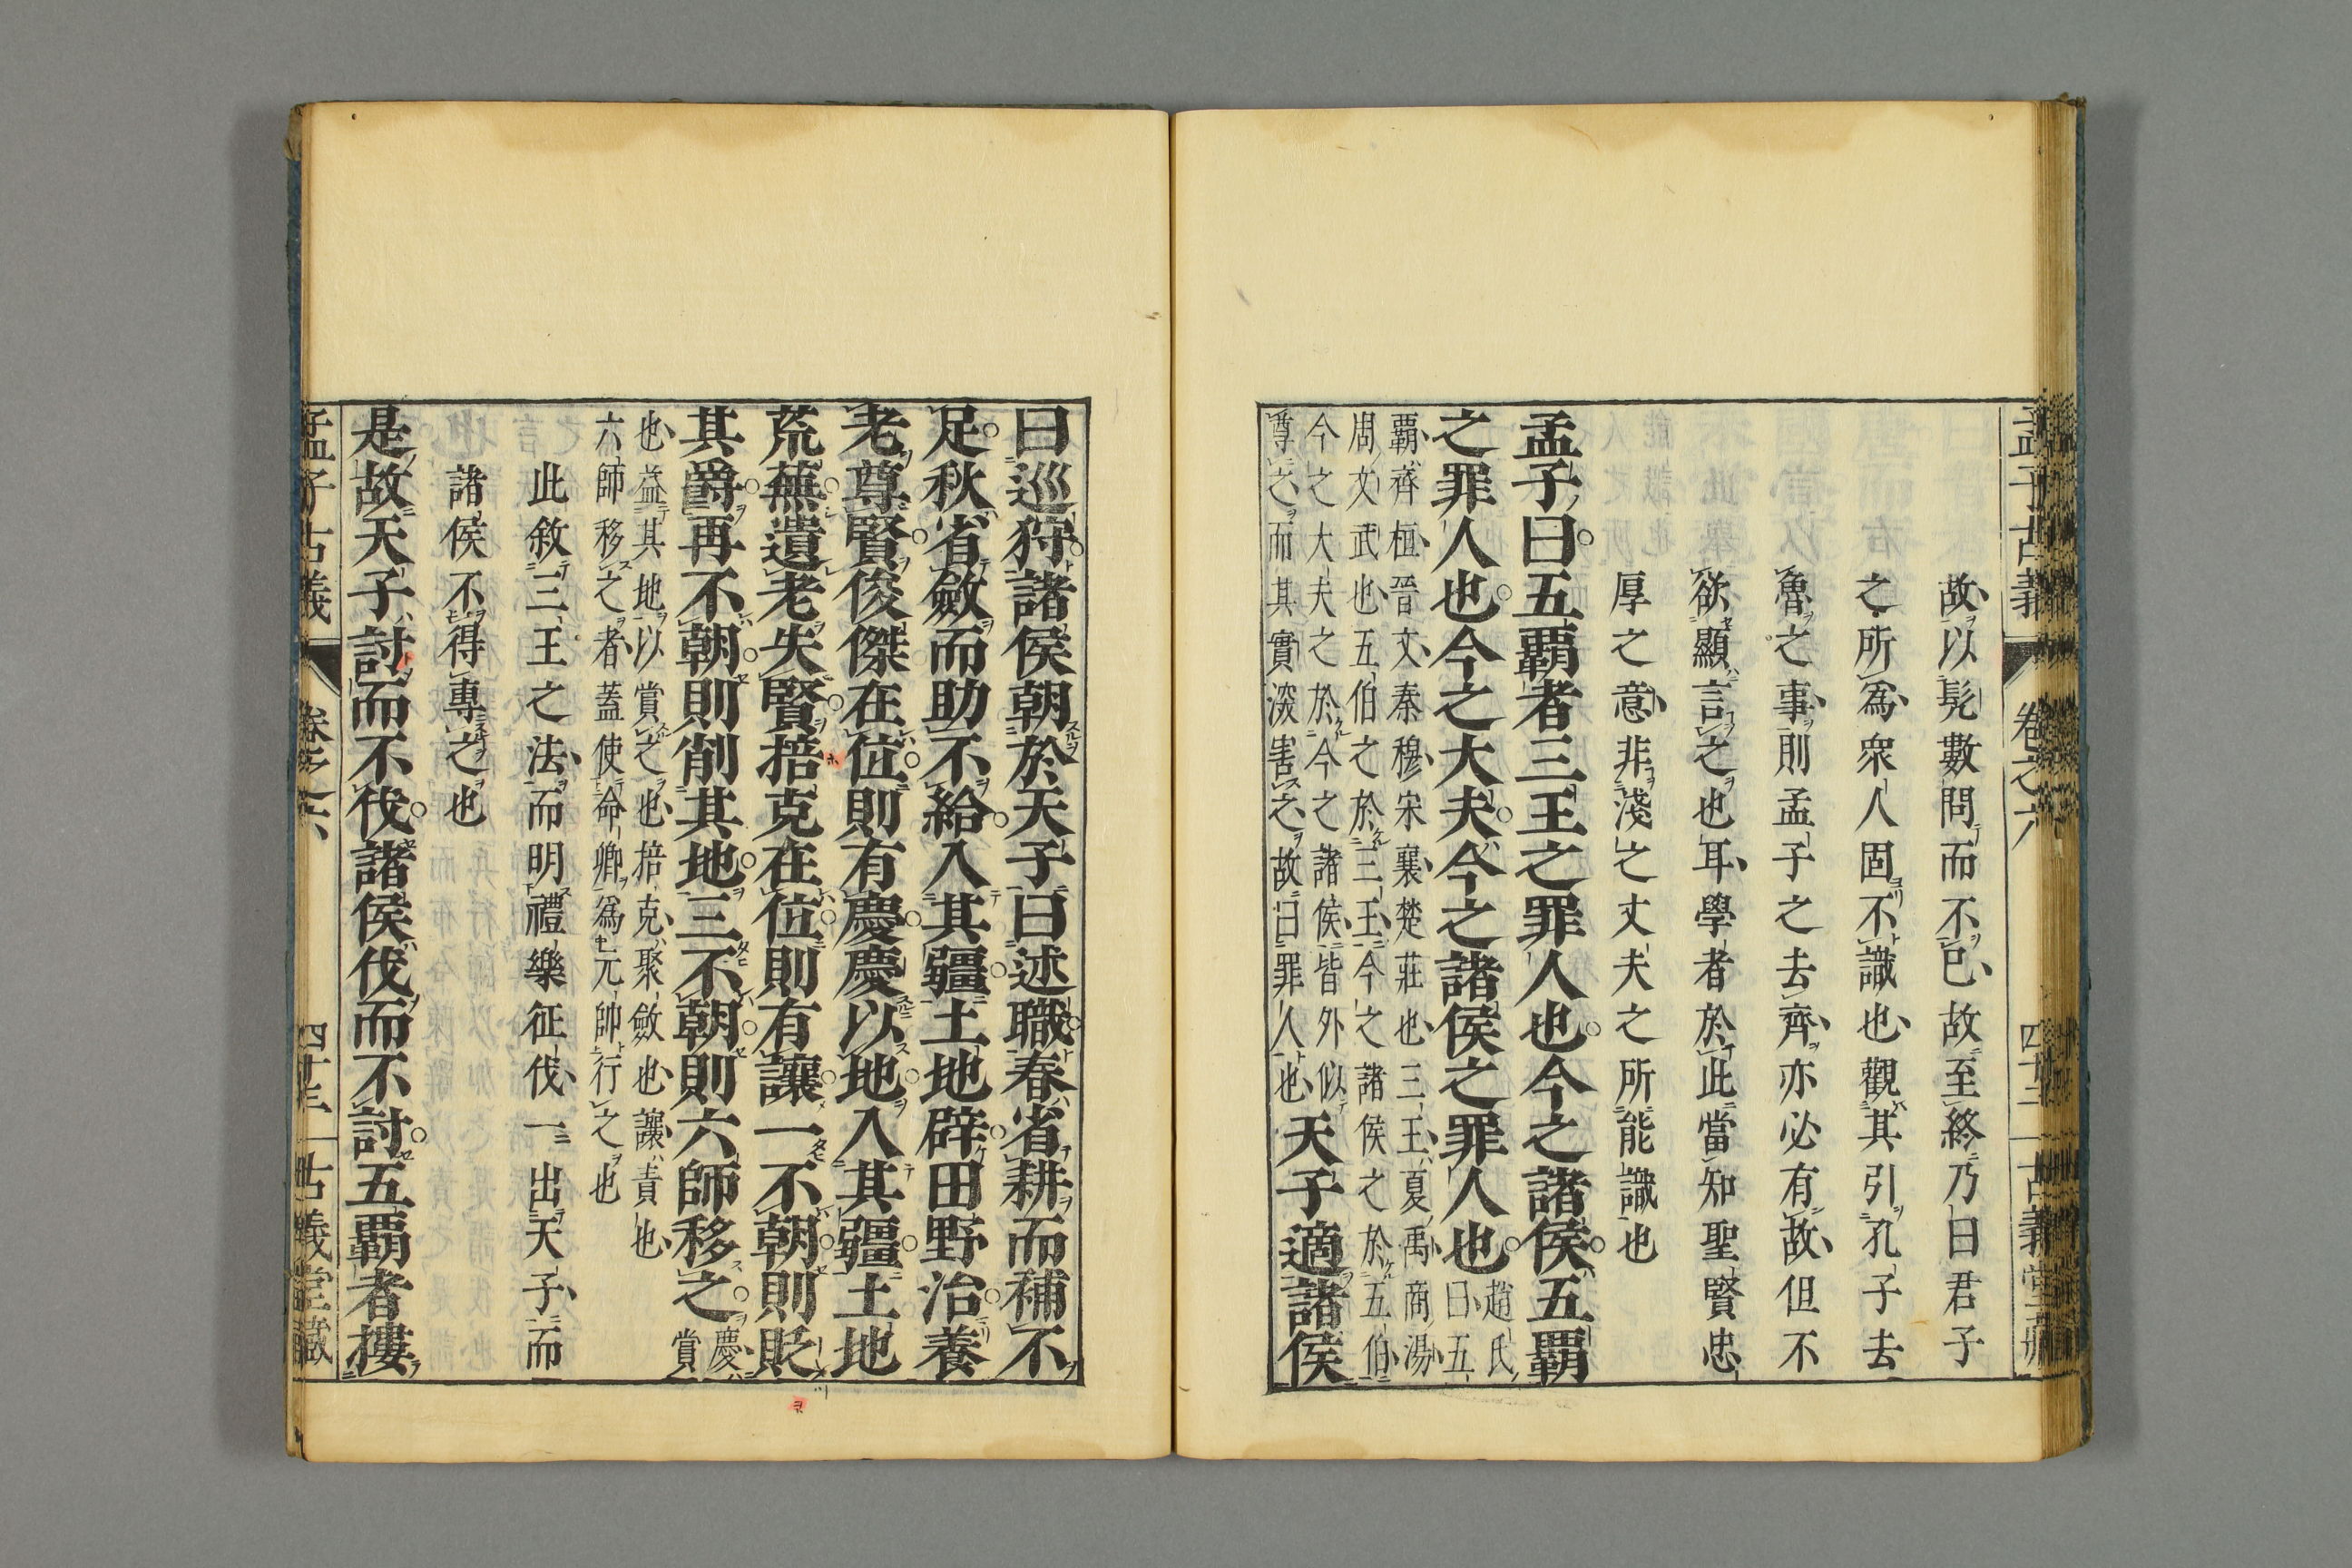 孟子古義
卷之六
四十二
古義堂藏
故以髡數問而不已故至終乃曰君子
之所爲衆人固不識也觀其引孔子去
魯之事則孟子之去齊亦必有故但不
欲顯言之也耳學者於此當知聖賢忠
厚之意非淺之丈夫之所能識也
孟子曰五覇者三王之罪人也今之諸侯五覇
之罪人也今之大夫今之諸侯之罪人也
趙氏
曰五
覇齊桓晉文秦穆宋襄楚莊也三王夏禹商湯
周文武也五伯之於三王今之諸侯之於五伯
今之大夫之於今之諸侯皆外似
尊之而其實深害之故曰罪人也
天子適諸侯
曰巡狩諸侯朝於天子曰述職春省耕而補不
足秋省斂而助不給入其疆土地辟田野治養
老尊賢俊傑在位則有慶慶以地入其疆土地
荒蕪遺老失賢掊克在位則有讓一不朝則貶
其爵再不朝則削其地三不朝則六師移之
慶
賞
也益其地以賞之也掊克聚斂也讓責也
六師移之者蓋使命卿爲元帥行之也
此敘三王之法而明禮樂征伐一出天子而
諸侯不得專之也
是故天子討而不伐諸侯伐而不討五覇者摟
孟子古義
卷之六
四十三
古義堂藏